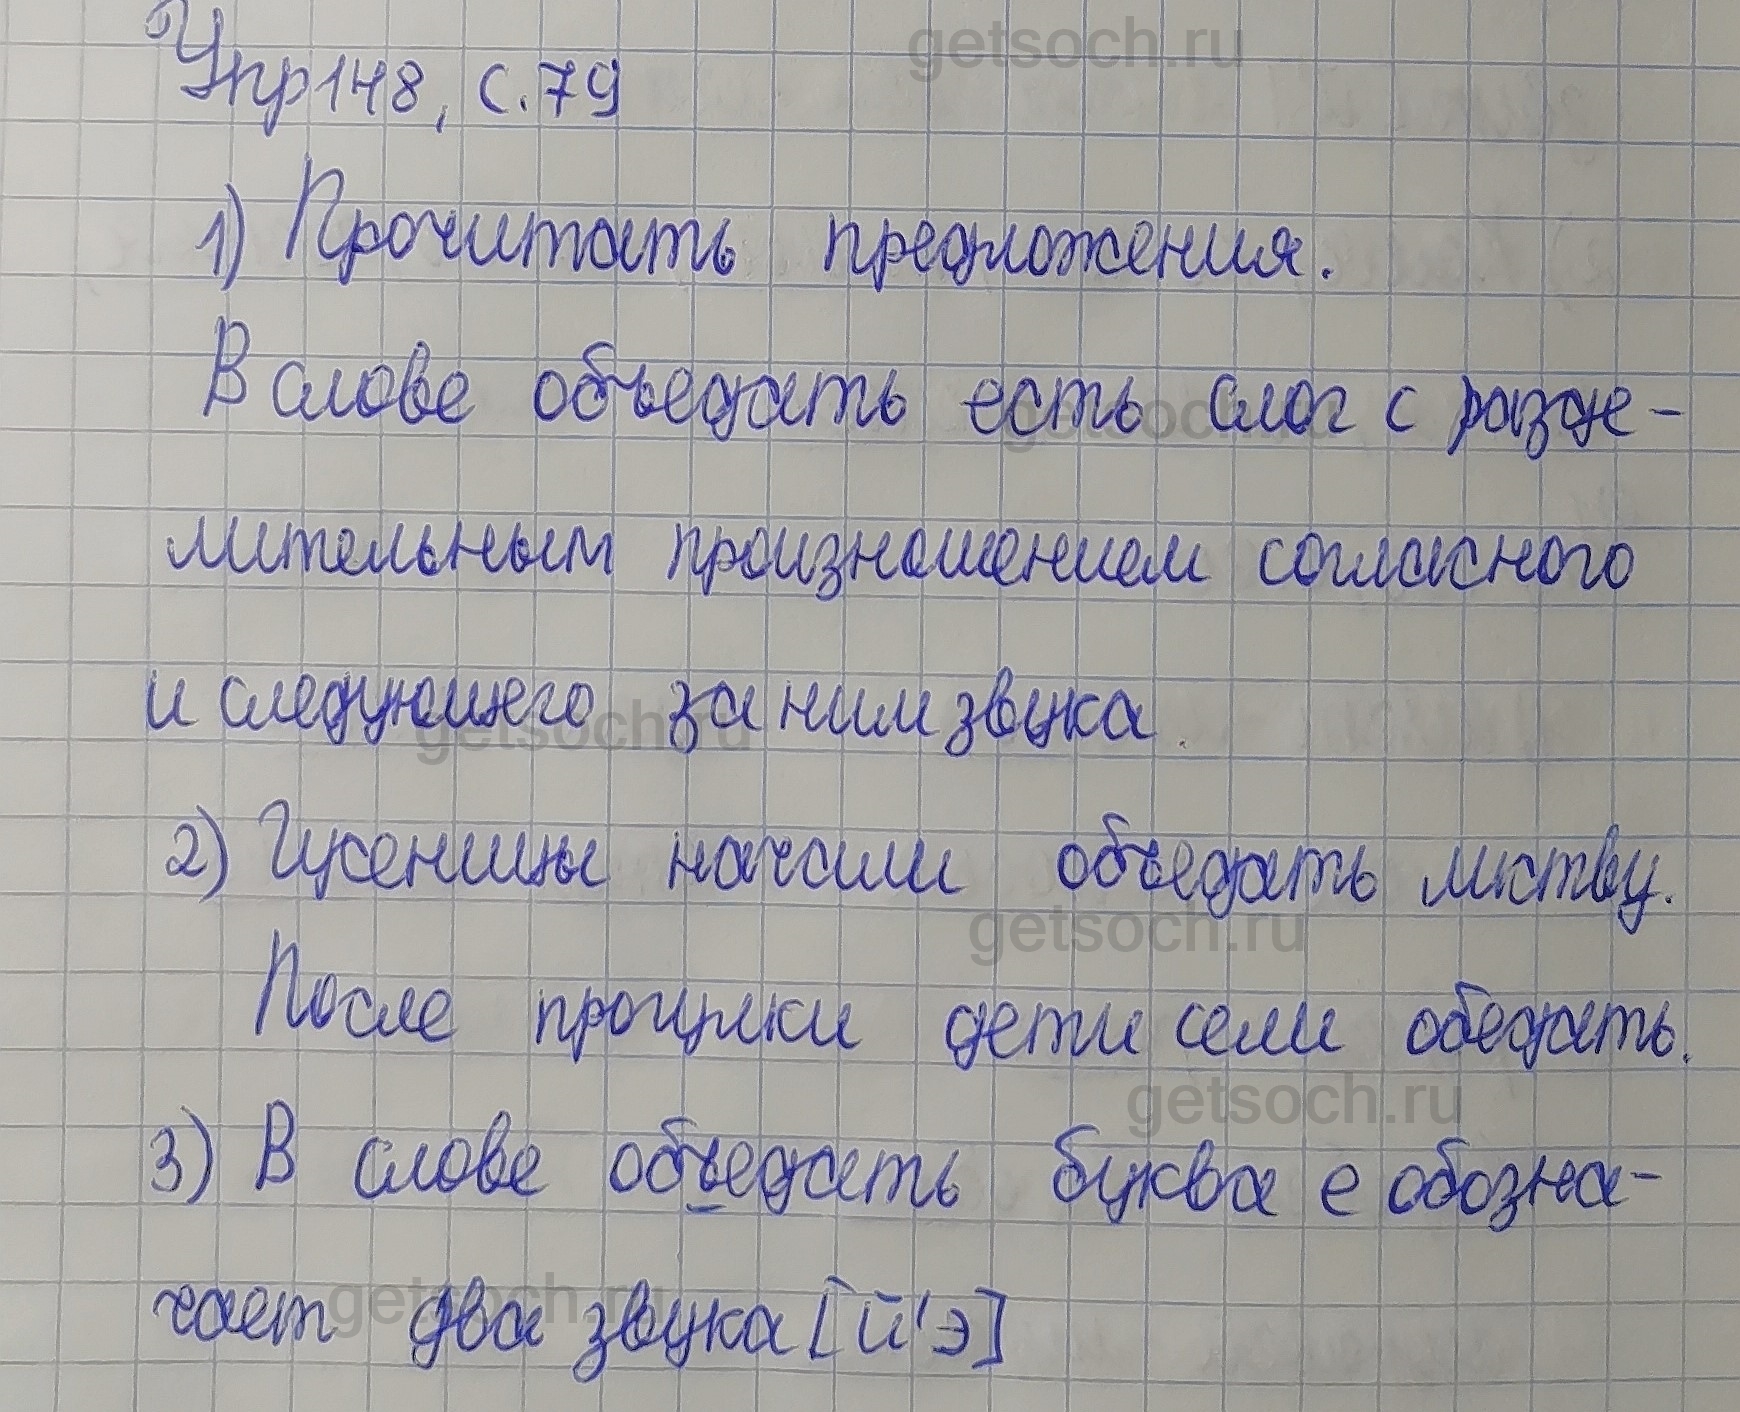 getsoch.ru
Упр148, с.79
1) Прочитать предложения.
В слове объедать есть слог с разде-
getsoch.ru
лительным произношением согласного
и следующего за ним звука.
getsoch.ru
2) Гусеницы начали объедать листву.
getsoch.ru
После прогулки дети сели обедать.
getsoch.ru
3) В слове объедать буква е обозна-
чает два звука [й'э]
getsoch.ru